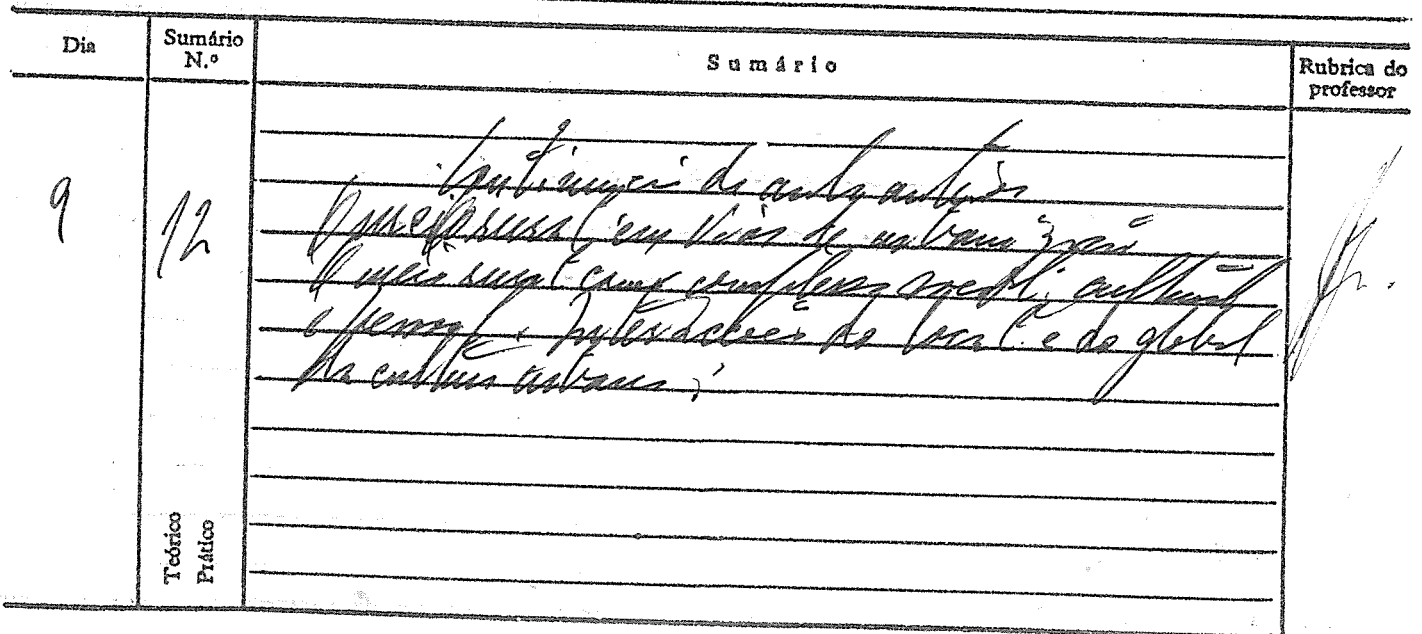 Dia
Sumário N.º
Sumário
Rubrica do professor
9
12
Continuação da aula anterior
O meio rural em vias de urbanização
O meio rural como complexo social, cultural
e . Interacções do local e do global
na cultura urbana;
Teórico
Prático